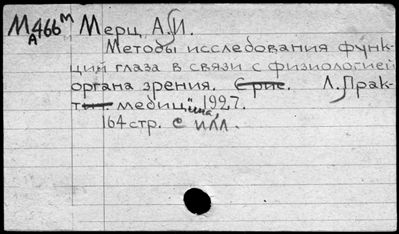 МА466м Мерц, А.И.
Методы исследования функ-
ций глаза в связи с физиологией
органа зрения. С рис. Л. Прак-
т. медиц"ина", 1927.
164 стр. с илл.